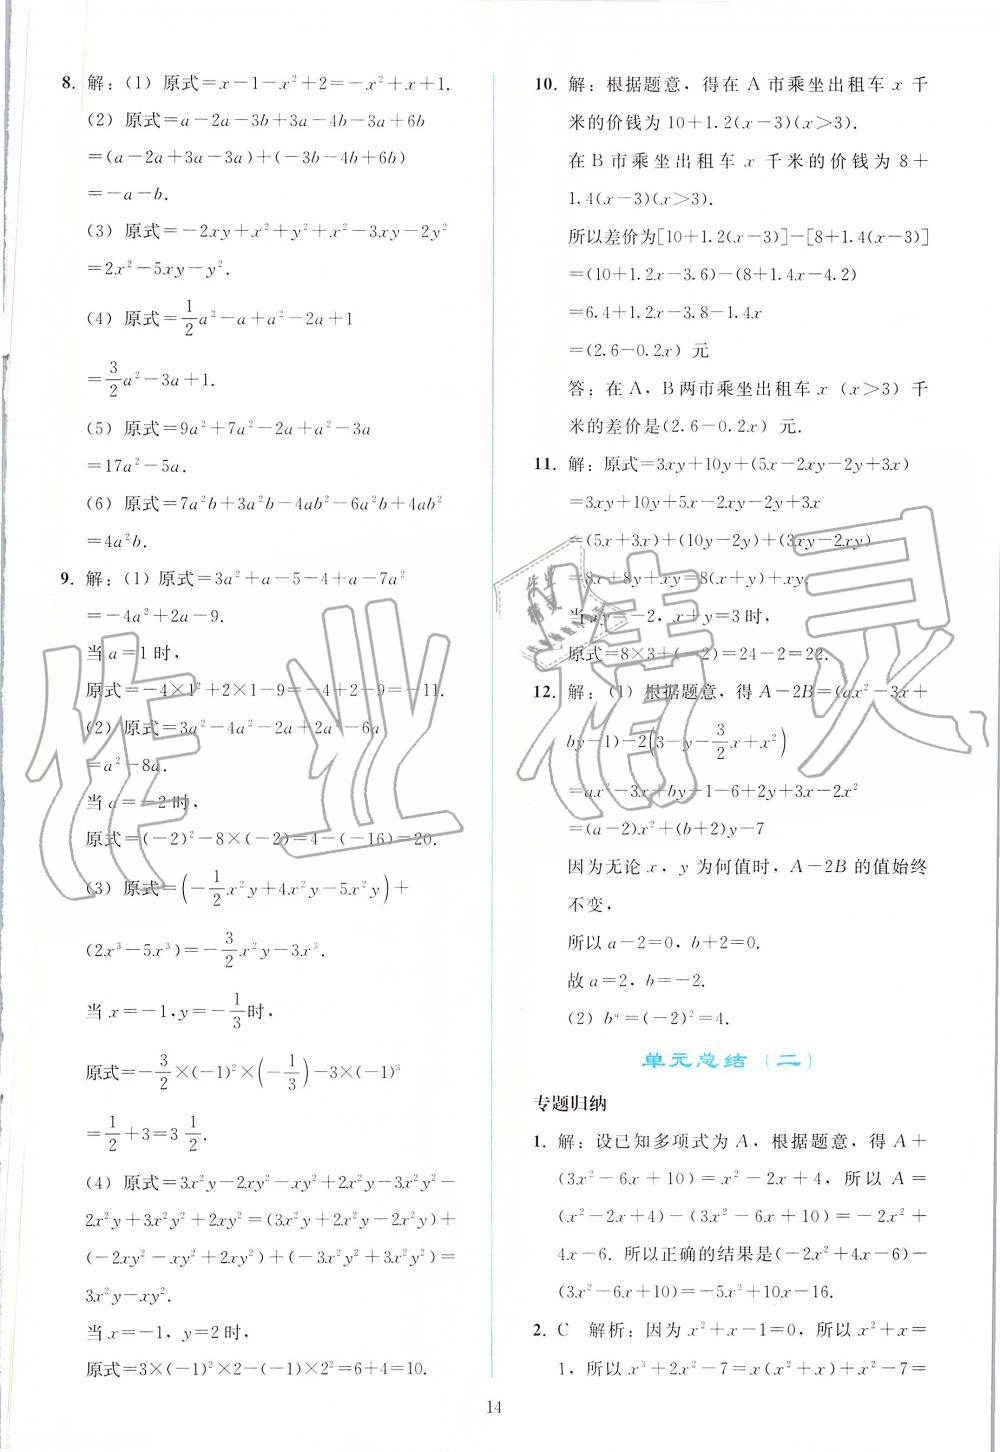 8. 解：(1) 原式=x-1-x²+2=-x²+x+1.
(2) 原式=a-2a-3b+3a-4b-3a+6b
=(a-2a+3a-3a)+(-3b-4b+6b)
=-a-b.
(3) 原式=-2xy+x²+y²+x²-3xy-2y²
=2x²-5xy-y².
(4) 原式=\frac{1}{2}a²-a+a²-2a+1
=\frac{3}{2}a²-3a+1.
(5) 原式=9a²+7a²-2a+a²-3a
=17a²-5a.
(6) 原式=7a²b+3a²b-4ab²-6a²b+4ab²
=4a²b.
9. 解：(1) 原式=3a²+a-5-4+a-7a²
=-4a²+2a-9.
当 a=1 时，
原式=-4×1²+2×1-9=-4+2-9=-11.
(2) 原式=3a²-4a²-2a+2a²-6a
=a²-8a.
当 a=-2 时，
原式=(-2)²-8×(-2)=4-(-16)=20.
(3) 原式=(-\frac{1}{2}x²y+4x²y-5x²y)+
(2x³-5x³)=-\frac{3}{2}x²y-3x³.
当 x=-1,y=-\frac{1}{3}时，
原式=-\frac{3}{2}×(-1)²×(-\frac{1}{3})-3×(-1)³
=\frac{1}{2}+3=3\frac{1}{2}.
(4) 原式=3x²y-2xy²-xy²+2x²y-3x²y²-
2x²y+3x²y²+2xy²=(3x²y+2x²y-2x²y)+
(-2xy²-xy²+2xy²)+(-3x²y²+3x²y²)=
3x²y-xy².
当 x=-1，y=2 时，
原式=3×(-1)²×2-(-1)×2²=6+4=10.
10. 解：根据题意，得在 A 市乘坐出租车 x 千
米的价钱为 10+1.2(x-3)(x>3).
在 B 市乘坐出租车 x 千米的价钱为 8+
1.4(x-3)(x>3).
所以差价为[10+1.2(x-3)]-[8+1.4(x-3)]
=(10+1.2x-3.6)-(8+1.4x-4.2)
=6.4+1.2x-3.8-1.4x
=(2.6-0.2x) 元
答：在 A，B 两市乘坐出租车 x（x>3）千
米的差价是(2.6-0.2x) 元.
11. 解：原式=3xy+10y+(5x-2xy-2y+3x)
=3xy+10y+5x-2xy-2y+3x
=(5x+3x)+(10y-2y)+(3xy-2xy)
=8x+8y+xy=8(x+y)+xy.
当 xy=-2，x+y=3 时，
原式=8×3+(-2)=24-2=22.
12. 解：(1) 根据题意，得 A-2B=(ax²-3x+
by-1)-2(3-y-\frac{3}{2}x+x²)
=ax²-3x+by-1-6+2y+3x-2x²
=(a-2)x²+(b+2)y-7
因为无论 x，y 为何值时，A-2B 的值始终
不变，
所以 a-2=0，b+2=0.
故 a=2，b=-2.
(2) bᵃ=(-2)²=4.
单元总结（二）
专题归纳
1. 解：设已知多项式为 A，根据题意，得 A+
(3x²-6x+10)=x²-2x+4，所以 A=
(x²-2x+4)-(3x²-6x+10)=-2x²+
4x-6. 所以正确的结果是(-2x²+4x-6)-
(3x²-6x+10)=-5x²+10x-16.
2. C 解析：因为 x²+x-1=0，所以 x²+x=
1，所以 x³+2x²-7=x(x²+x)+x²-7=
14
作业精灵
作业
精灵